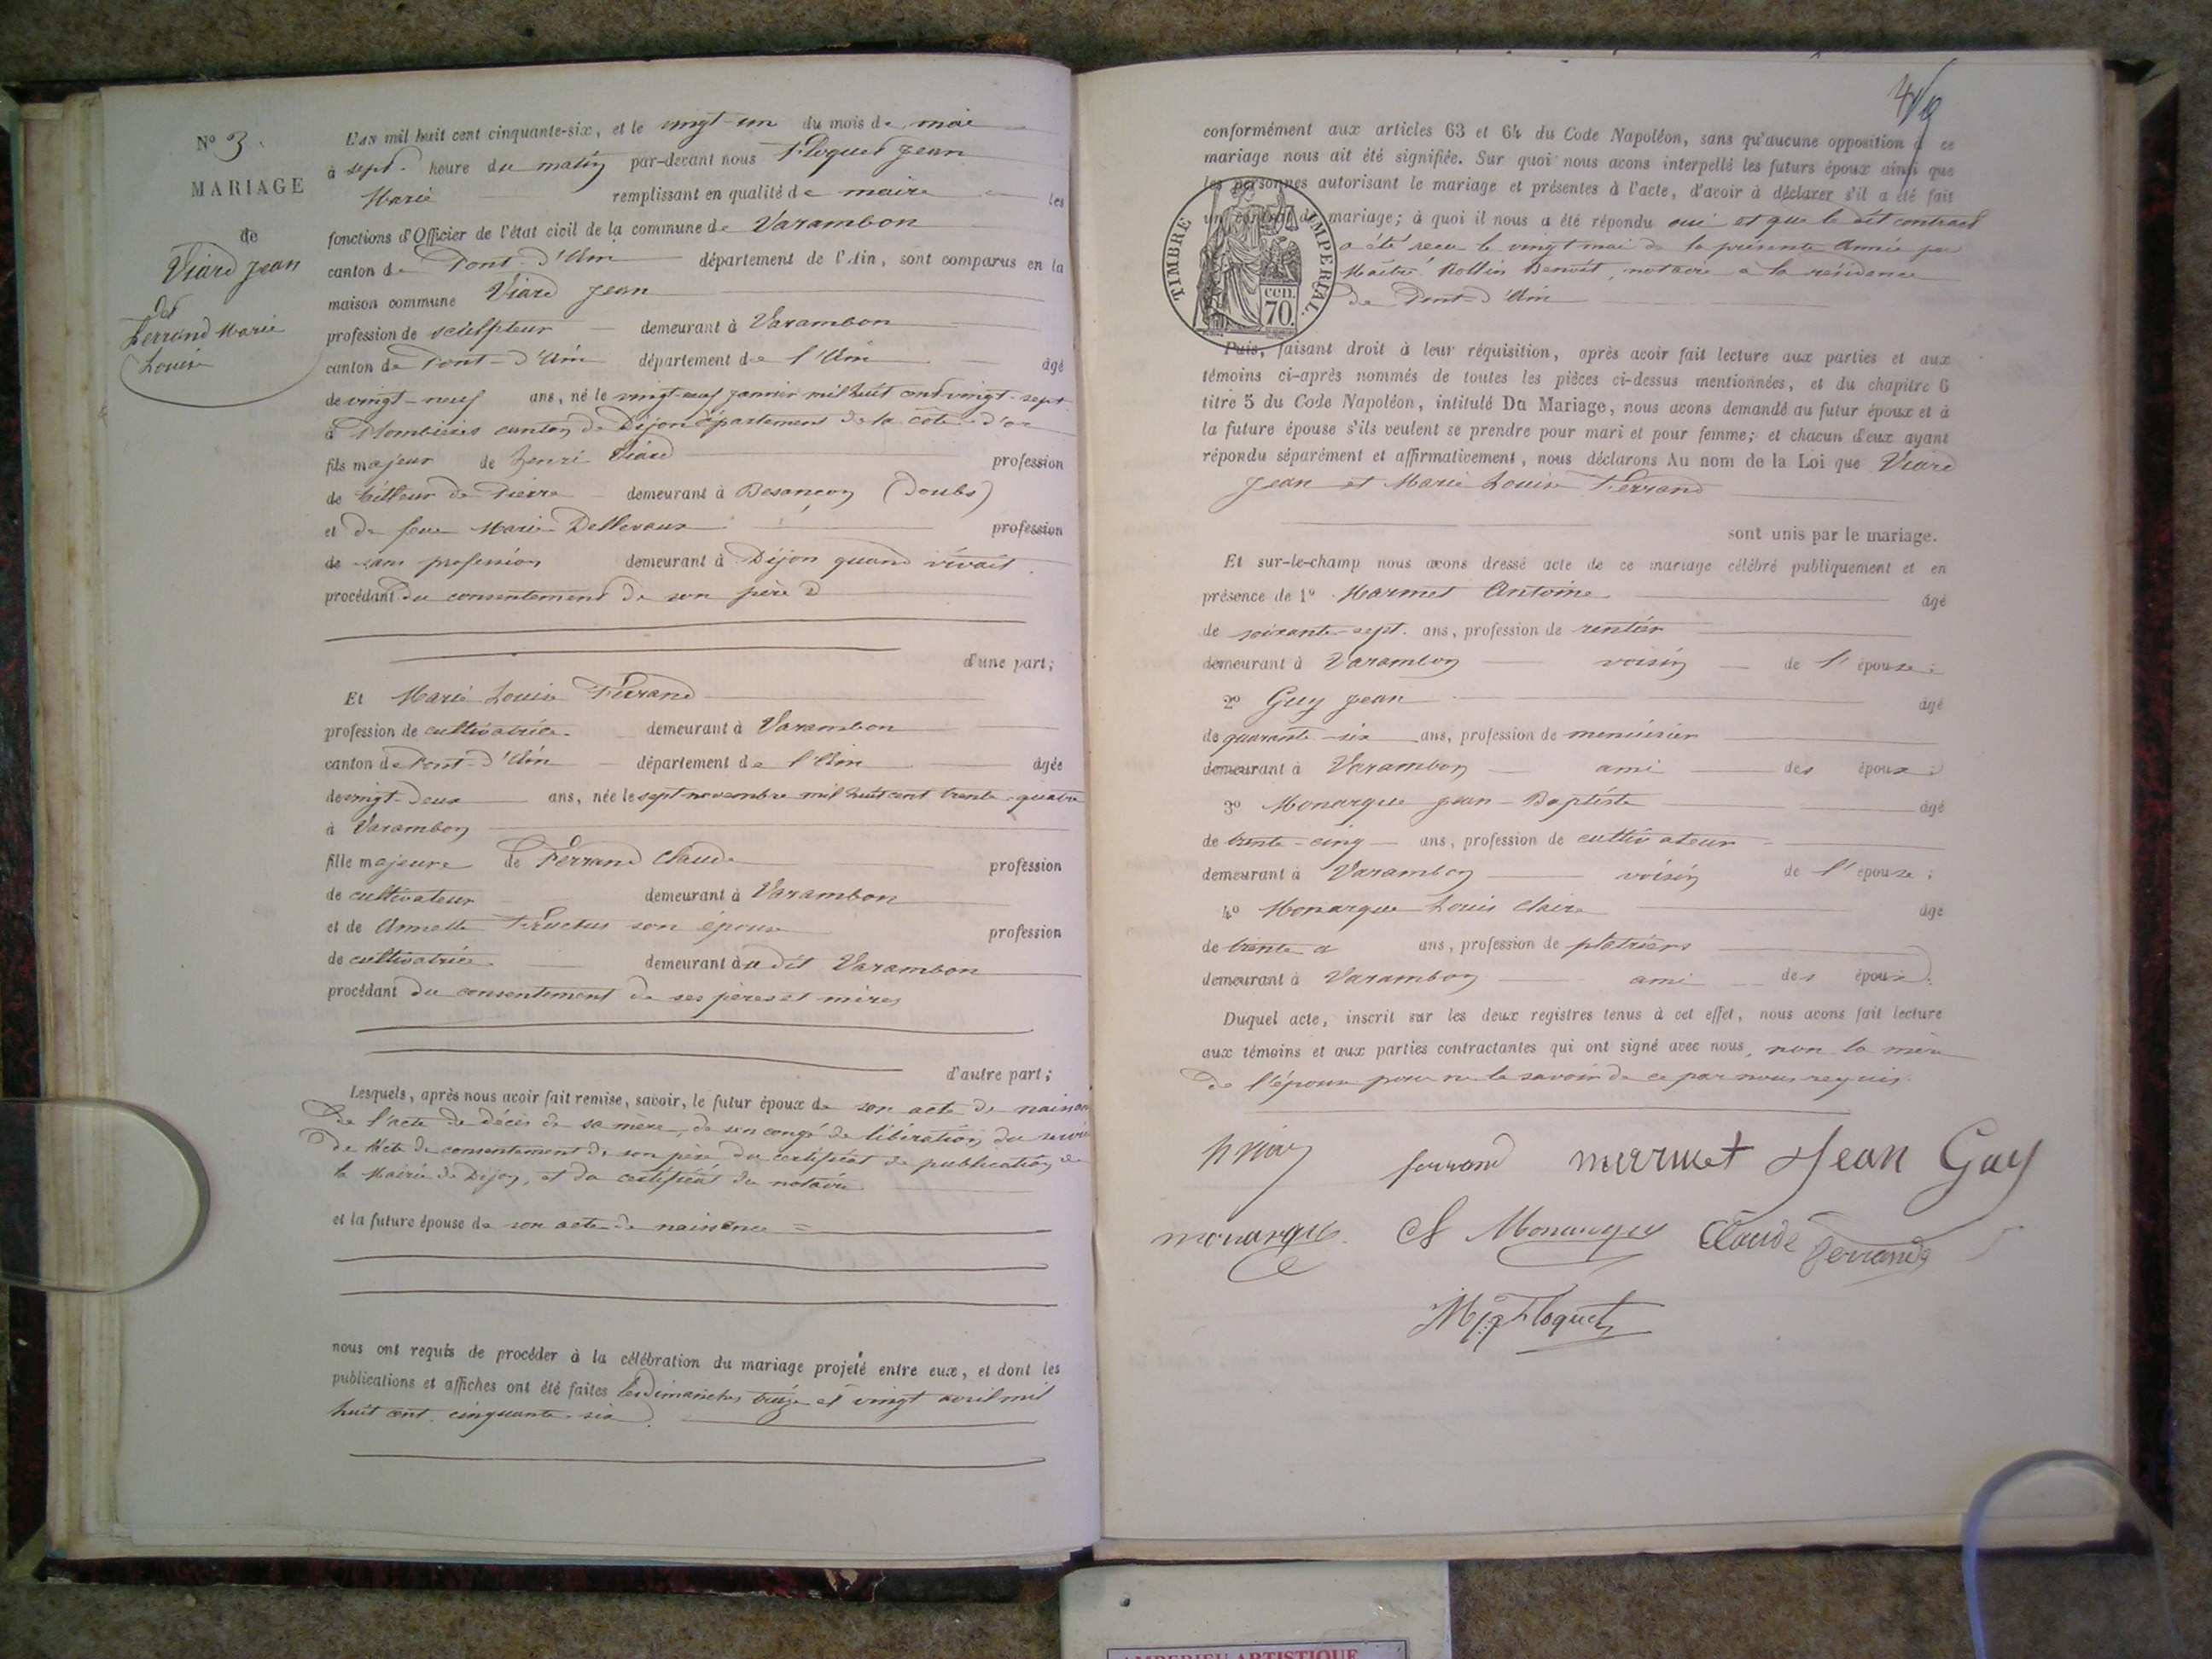 N° 3.
MARIAGE
de
Viard Jean
et
Ferrand Marie
Louise
L'AN mil huit cent cinquante-six, et le vingt-un du mois de mai
à sept heure du matin par-devant nous Floquet Jean
Marie remplissant en qualité de maire les
fonctions d'Officier de l'état civil de la commune de Varambon
canton de Pont-d'Ain département de l'Ain, sont comparus en la
maison commune Viard Jean
profession de sculpteur demeurant à Varambon
canton de Pont-d'Ain département de l'Ain âgé
de vingt-neuf ans, né le vingt neuf janvier mil huit cent vingt-sept
à Plombières canton de Dijon département de la côte-d'or
fils majeur de henri Viard profession
de tailleur de Pierre demeurant à Besançon (Doubs)
et de feue Marie Dellevaux profession
de sans profession demeurant à Dijon quand vivait.
procédant du consentement de son père
d'une part;
Et Marie Louise Ferrand
profession de cultivatrice demeurant à Varambon
canton de Pont-d'Ain département de l'Ain âgée
de vingt-deux ans, née le sept novembre mil huit cent trente-quatre
à Varambon
fille majeure de Ferrand Claude profession
de cultivateur demeurant à Varambon
et de Annette Fructus son épouse profession
de cultivatrice demeurant au dit Varambon
procédant du consentement de ses pères et mères
d'autre part;
Lesquels, après nous avoir fait remise, savoir, le futur époux de son acte de naissan
De l'acte de décès de sa mère, de son congé de libération du service
De l'acte de consentement de son père du certificat de publication de
la Mairie de Dijon, et du certificat du notaire
et la future épouse de son acte de naissance =
nous ont requis de procéder à la célébration du mariage projeté entre eux, et dont les
publications et affiches ont été faites les dimanches treize et vingt avril mil
huit cent cinquante six.
conformément aux articles 63 et 64 du Code Napoléon, sans qu'aucune opposition à ce
mariage nous ait été signifiée. Sur quoi nous avons interpellé les futurs époux ainsi que
les personnes autorisant le mariage et présentes à l'acte, d'avoir à déclarer s'il a été fait
un contrat de mariage; à quoi il nous a été répondu oui et que le dit contrat
a été recu le vingt mai de la présente Année par
Maître Rottin Benoit, notaire à la résidence
de Pont-d'Ain
TIMBRE IMPERIAL.
cen.
70.
Puis, faisant droit à leur réquisition, après avoir fait lecture aux parties et aux
témoins ci-après nommés de toutes les pièces ci-dessus mentionnées, et du chapitre 6
titre 5 du Code Napoléon, intitulé Du Mariage, nous avons demandé au futur époux et à
la future épouse s'ils veulent se prendre pour mari et pour femme; et chacun d'eux ayant
répondu séparément et affirmativement, nous déclarons Au nom de la Loi que Viard
Jean et Marie Louise Ferrand
sont unis par le mariage.
Et sur-le-champ nous avons dressé acte de ce mariage célébré publiquement et en
présence de 1° Mermet Antoine âgé
de soixante-sept. ans, profession de rentier
demeurant à Varambon voisin de l'épouse;
2° Guy Jean âgé
de quarante-six ans, profession de menuisier
demeurant à Varambon ami des époux;
3° Monarque Jean-Baptiste âgé
de trente-cinq ans, profession de cultivateur
demeurant à Varambon voisin de l'épouse;
4° Monarque Louis Claire âgé
de trente ans, profession de platriers
demeurant à Varambon ami des époux.
Duquel acte, inscrit sur les deux registres tenus à cet effet, nous avons fait lecture
aux témoins et aux parties contractantes qui ont signé avec nous, non la mère
de l'épouse pour ne le savoir de ce par nous requis.
ferrand mermet Jean Guy
monarque Monarque Claude Ferrand
Floquet
AMBERIEU ARTISTIQUE